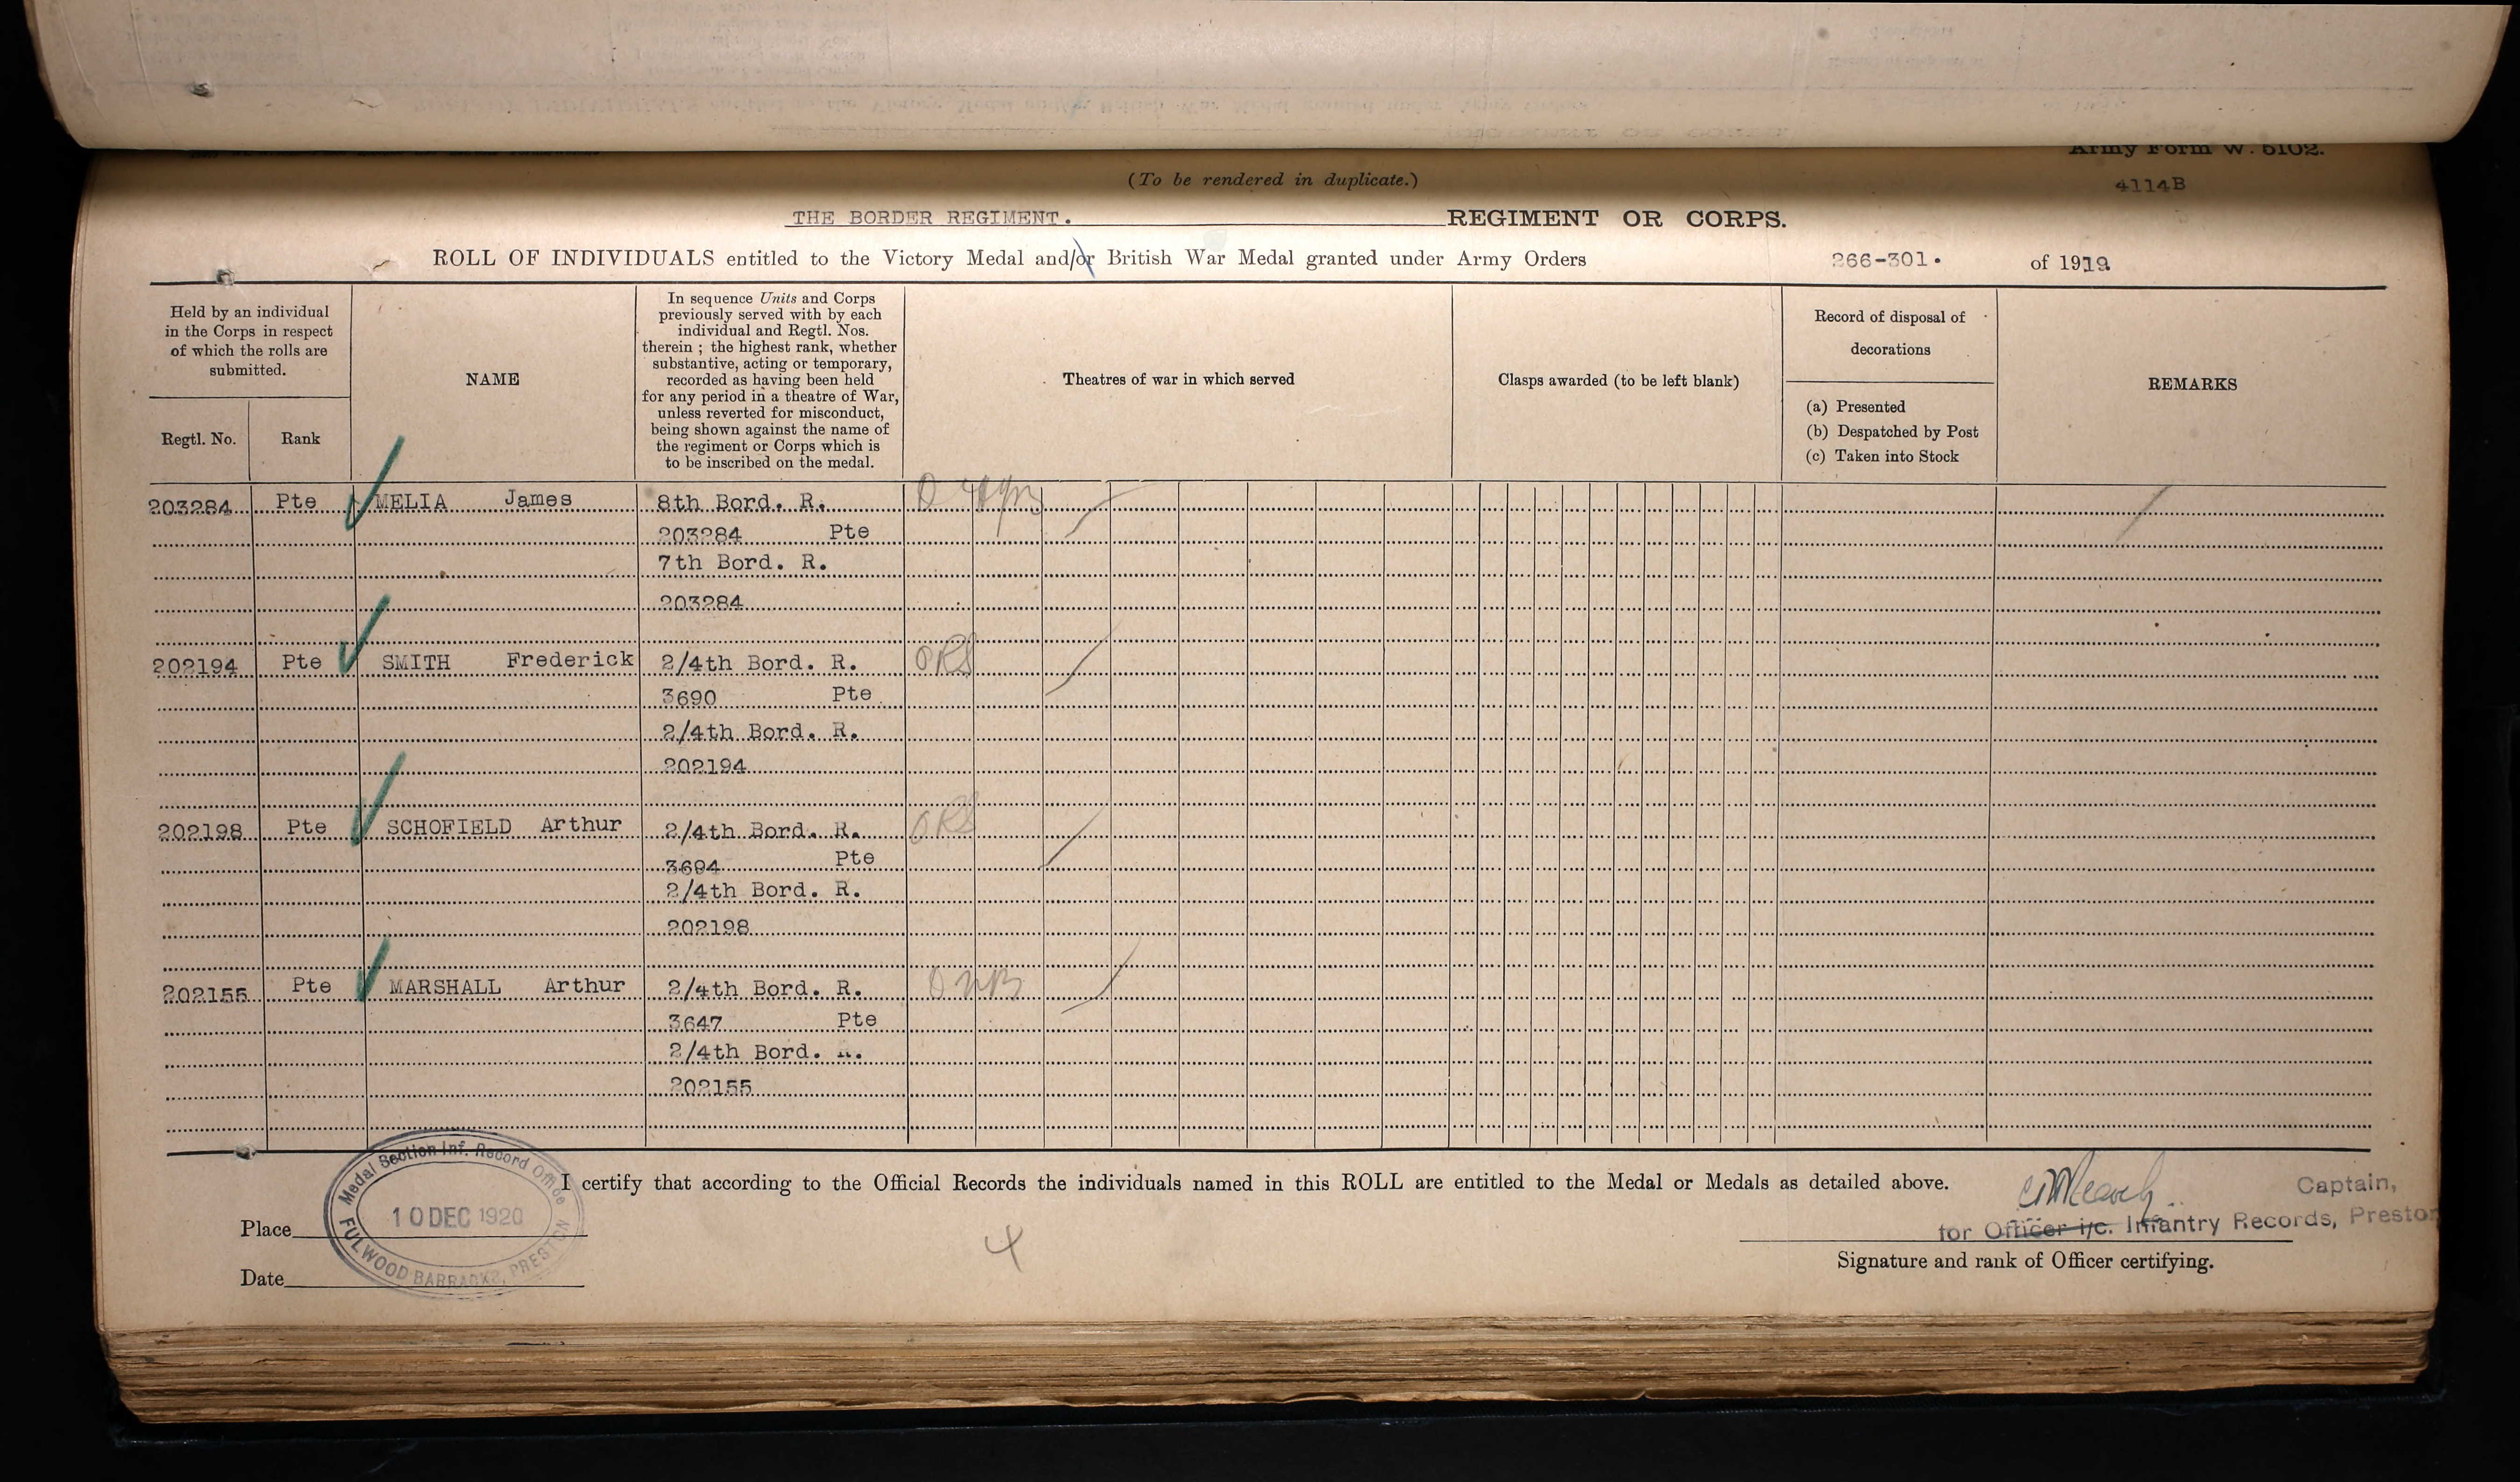 Army Form W. 5102.
(To be rendered in duplicate.)
4114B
THE BORDER REGIMENT. REGIMENT OR CORPS.
ROLL OF INDIVIDUALS entitled to the Victory Medal and/or British War Medal granted under Army Orders 266-301. of 1919.
Held by an individual
in the Corps in respect
of which the rolls are
submitted.
Regtl. No. Rank
NAME
In sequence Units and Corps
previously served with by each
individual and Regtl. Nos.
therein ; the highest rank, whether
substantive, acting or temporary,
recorded as having been held
for any period in a theatre of War,
unless reverted for misconduct,
being shown against the name of
the regiment or Corps which is
to be inscribed on the medal.
Theatres of war in which served
Clasps awarded (to be left blank)
Record of disposal of
decorations
(a) Presented
(b) Despatched by Post
(c) Taken into Stock
REMARKS
203284 Pte MELIA James 8th Bord. R.
203284 Pte
7th Bord. R.
203284
202194 Pte SMITH Frederick 2/4th Bord. R. ORS
3690 Pte
2/4th Bord. R.
202194
202198 Pte SCHOFIELD Arthur 2/4th Bord. R. ORS
3694 Pte
2/4th Bord. R.
202198
202155 Pte MARSHALL Arthur 2/4th Bord. R.
3647 Pte
2/4th Bord. R.
202155
Medal Section Inf. Record Office
10 DEC 1920
FULWOOD BARRACKS, PRESTON
I certify that according to the Official Records the individuals named in this ROLL are entitled to the Medal or Medals as detailed above.
Captain,
Place
for Officer i/c. Infantry Records, Preston
4
Signature and rank of Officer certifying.
Date